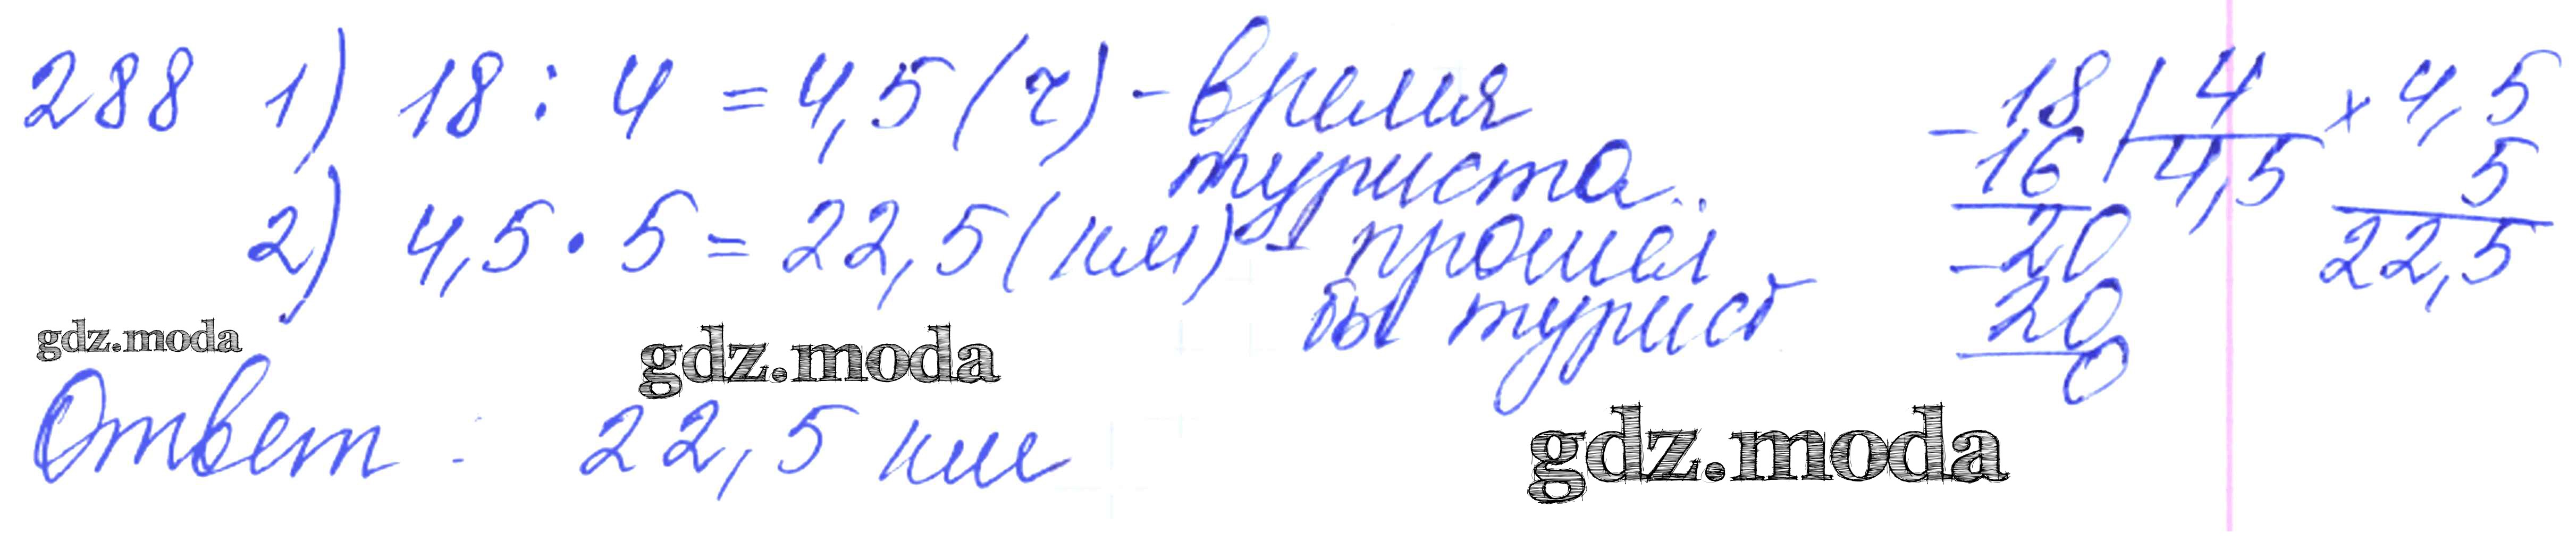 288 1) 18 : 4 = 4,5 (ч) - время
туриста.
2) 4,5 · 5 = 22,5 (км) - прошел
бы турист
Ответ : 22,5 км
-18 | 4
16 | 4,5
-20
20
0
× 4,5
5
22,5
gdz.moda
gdz.moda
gdz.moda